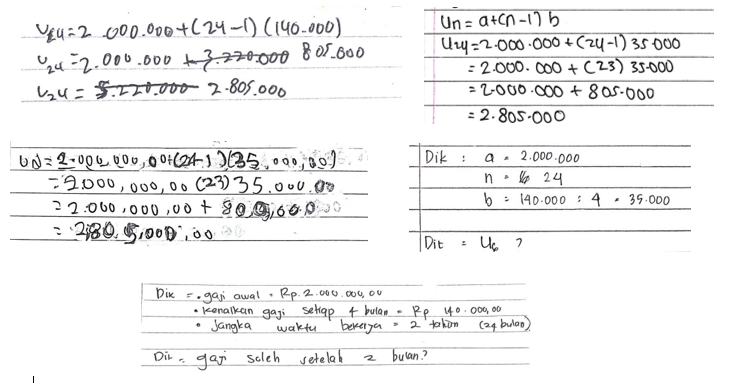 U24 = 2.000.000 + (24-1) (140.000)
U24 = 2.000.000 + 3.220.000 805.000
U24 = 5.220.000 2.805.000
Un = a+(n-1) b
U24 = 2.000.000 + (24-1) 35.000
= 2.000.000 + (23) 35.000
= 2.000.000 + 805.000
= 2.805.000
= 2.000,000,00 (23) 35.000.00
Dik : a = 2.000.000
n = 24
b = 140.000 : 4 = 35.000
Dit = U6 ?
Dik = • gaji awal = Rp. 2.000.000,00
• Kenaikan gaji setiap 4 bulan = Rp 140.000,00
• Jangka waktu bekerja = 2 tahun (24 bulan)
Dit = gaji soleh setelah 2 bulan?